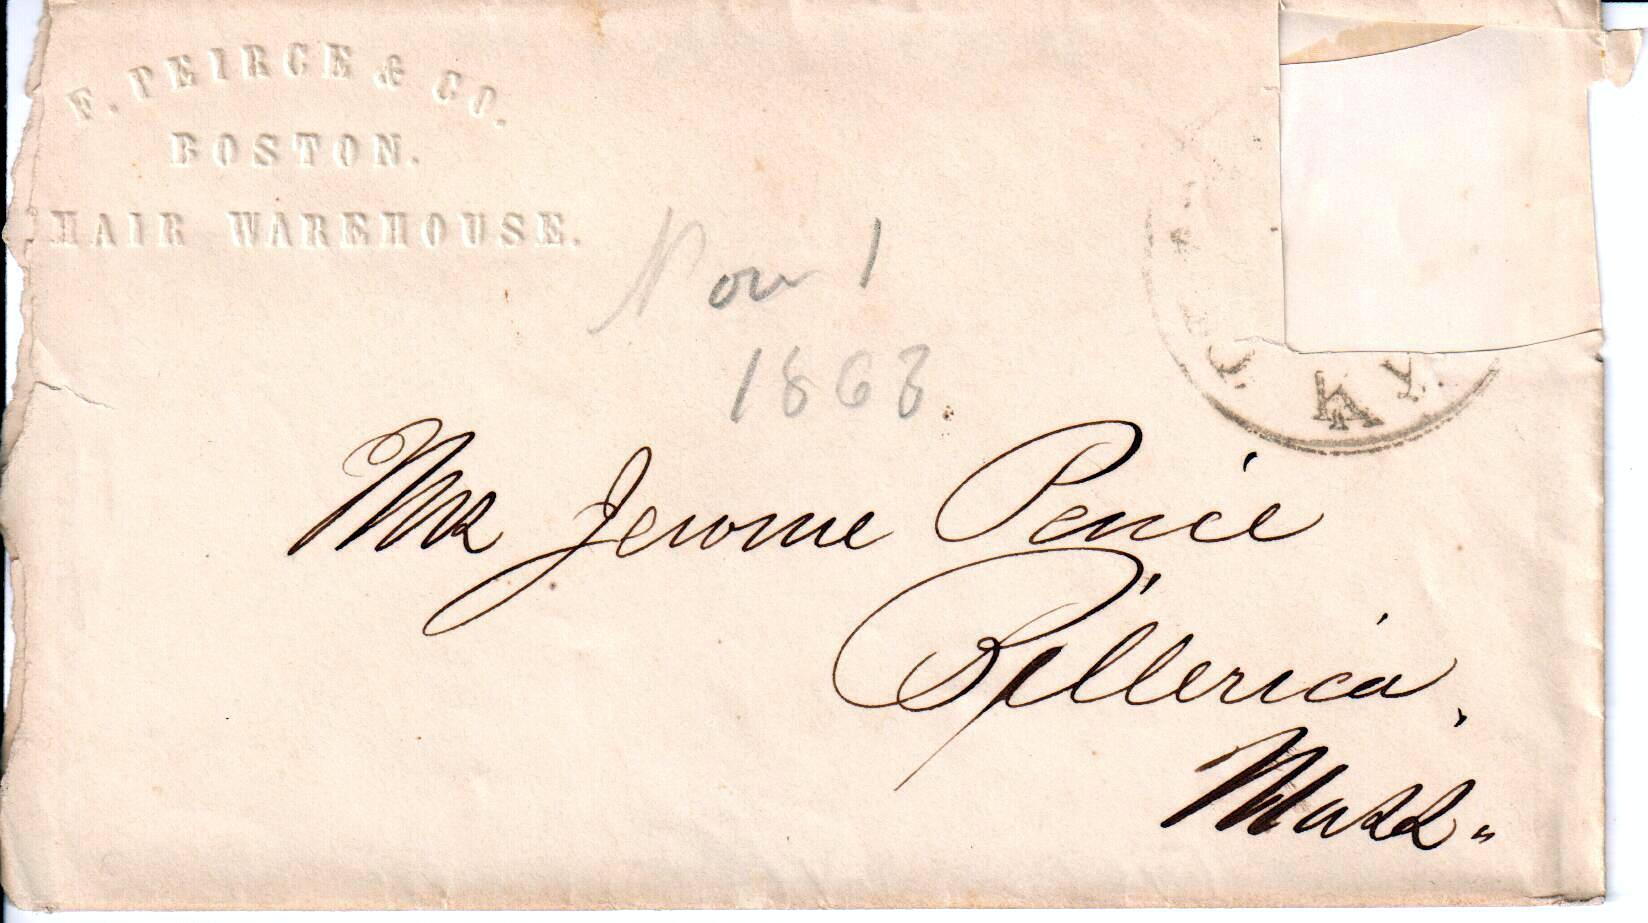 F. PEIRCE & CO.
BOSTON.
HAIR WAREHOUSE.
Nov 1
1863.
Mrs Jerome Peirce
Billerica,
Mass.